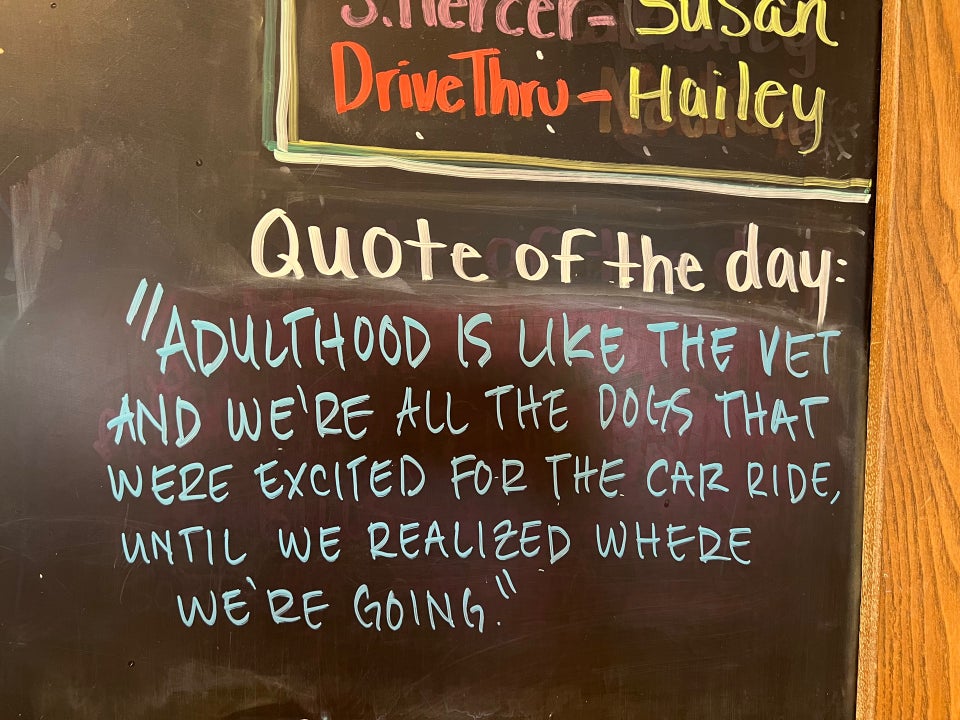 S. Mercer - Susan
Drive Thru - Hailey
Quote of the day:
"ADULTHOOD IS LIKE THE VET
AND WE'RE ALL THE DOGS THAT
WERE EXCITED FOR THE CAR RIDE,
UNTIL WE REALIZED WHERE
WE'RE GOING."